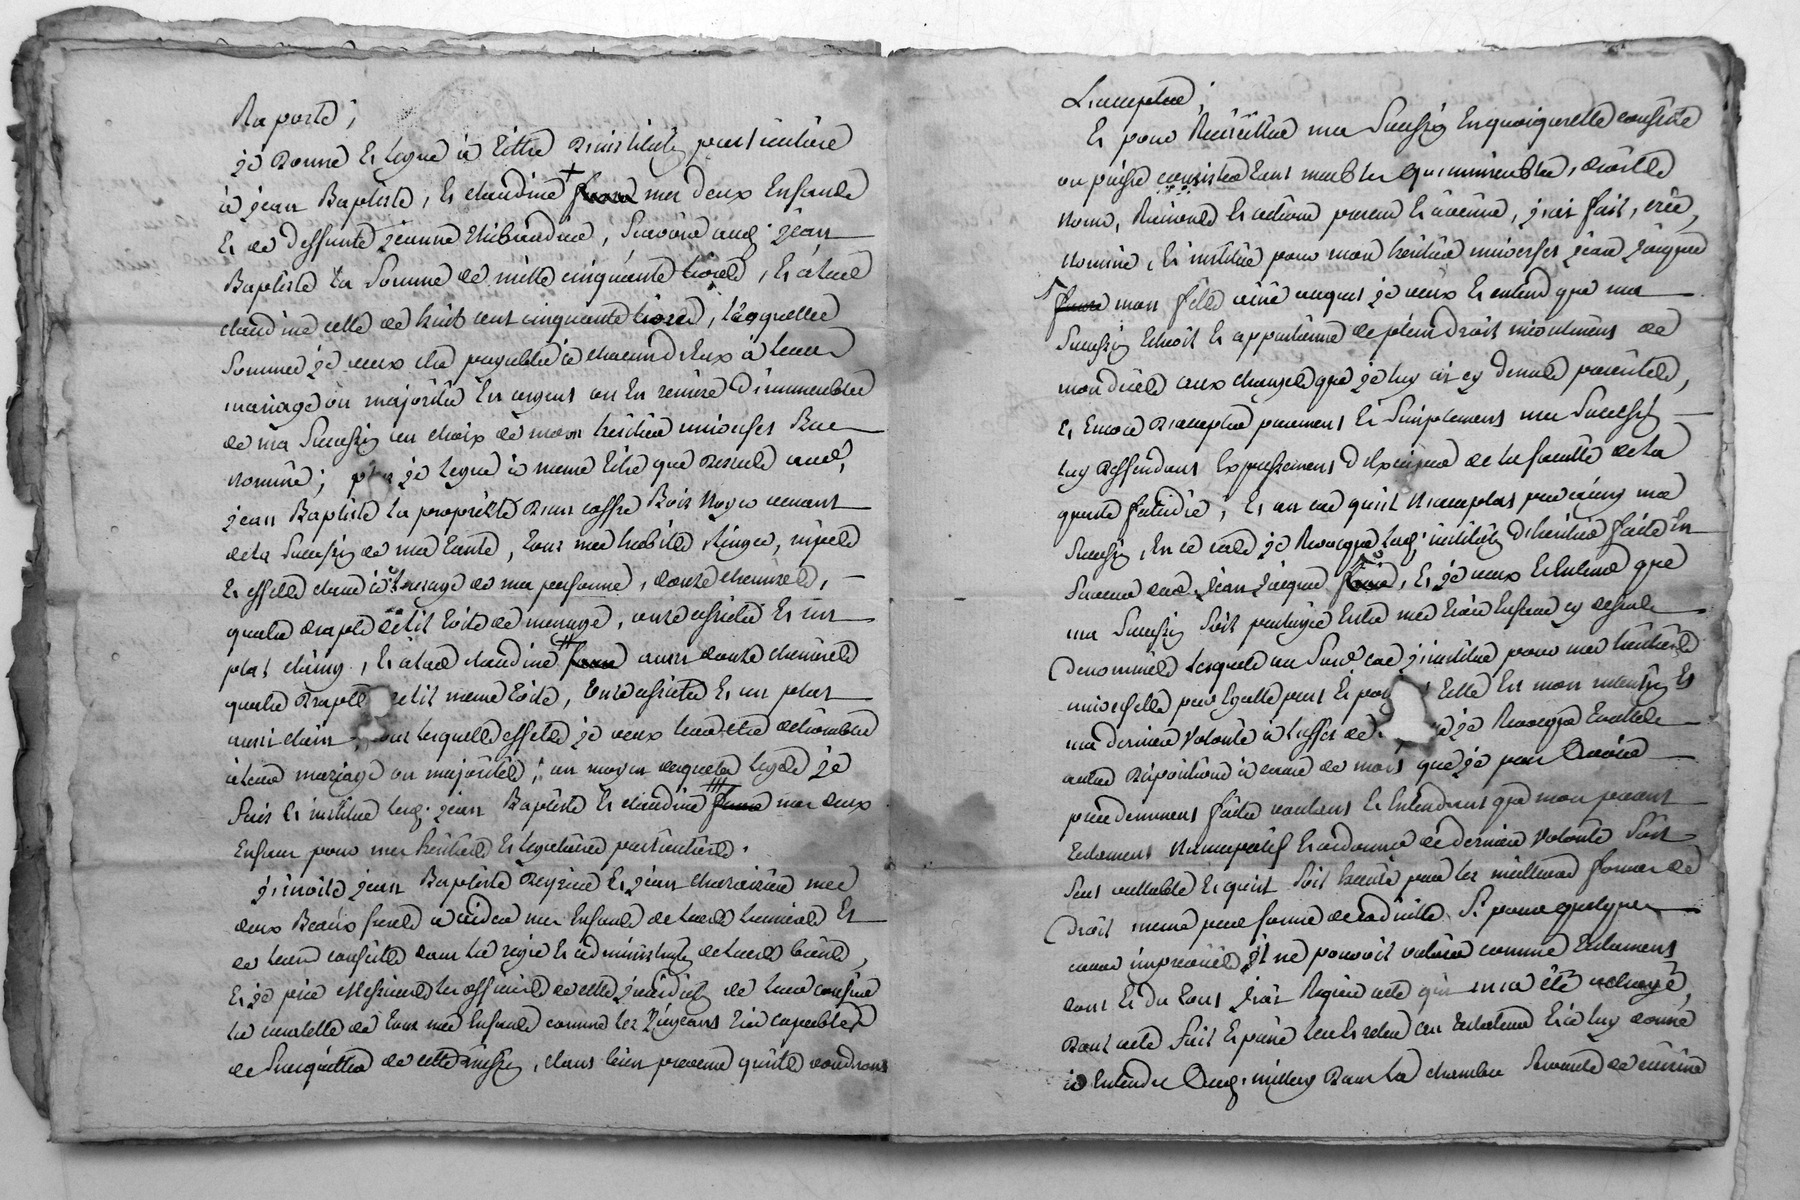 Raporté ;
je donne et legue à titre d'institution particulière
à jean Baptiste, et claudine mes deux Enfants
et de deffunte jeanne Thibaudier, Scavoir aud. jean
Baptiste la Somme de mille cinquante livres, et à lad.
claudine celle de huit cent cinquante livres, lesquelles
Sommes je veux etre payables à chacun d'eux à leur
mariage ou majorité en argent ou en remise d'immeubles
de ma Succession au choix de mon héritier universel Bas
nommé ; plus je legue à meme titre que dessus aud.
jean Baptiste la propriété d'un coffre Bois Noyer venant
de la Succession de ma tante, tous mes habits, linges,
et effets à l'usage de ma personne, douze chemises,
quatre draps de lit toile de menage, onze assiettes et un
plat d'étaing, et à lad. claudine aussi douze chemises
quatre draps de lit meme toile, onze assiettes et un plat
aussi étain, tous lesquels effets je veux leur etre délivrables
à leur mariage ou majorités ; au moyen desquels legs je
fais et institue lesd. jean Baptiste et claudine mes deux
Enfans pour mes héritiers et legataires particuliers.
j'invite jean Baptiste et jean mes
deux Beaux freres à aider mes Enfants de leurs lumieres et
de leurs conseils dans la regie et administration de leurs biens,
et je prie Messieurs les officiers de cette jurisdiction de leur
la curatelle de tous mes Enfants comme les jugeant très capables
de S'acquitter de cette mission, dans bien prevenu qu'ils voudront
L'accepter ;
Et pour Recueillir ma Succession En quoiqu'elle consiste
ou puisse consister tant meubles qu'immeubles, droits
noms, Raisons et actions present et avenir, j'ay fait, créé,
nommé, et institué pour mon héritier universel jean jacques
mon fils ainé auquel je veux et entend que ma
Succession echoit et appartienne de plein droit incontinent
mon décès aux charges que je luy ay cy devant
et encore d'accepter purement et Simplement ma Succession
luy deffendant Expressement d'Exciper de la faculté de la
quarte falcidie, et au cas qu'il n'accepta pas ainsy ma
Succession, En ce cas je Revoque lad. institution d'heritier faite en
faveur dud. jean jacques, et je veux et entend que
ma Succession Soit partagée Entre mes trois Enfans cy dessus
denommés lesquels au Susd. cas j'institue pour mes héritiers
universels par egalle part et portion telle est mon intention et
ma derniere volonté à l'effet de je Revoque toutes
autres dispositions à cause de mort que je peux avoir
precedemment faites voulant et Entendant que mon present
testament nuncupatif et ordonnance de derniere volonté Soit
Seul vallable et qu'il Soit executé par les meilleures formes de
droit meme par forme de codicille Si pour quelques
causes imprevües il ne pouvoit valoir comme testament
dont et du tout j'ay Requis acte qui m'a été octroyé,
Dont acte fait et passé leu et relu au testateur et à luy donné
à entendre dans la chambre Servante de cuisine